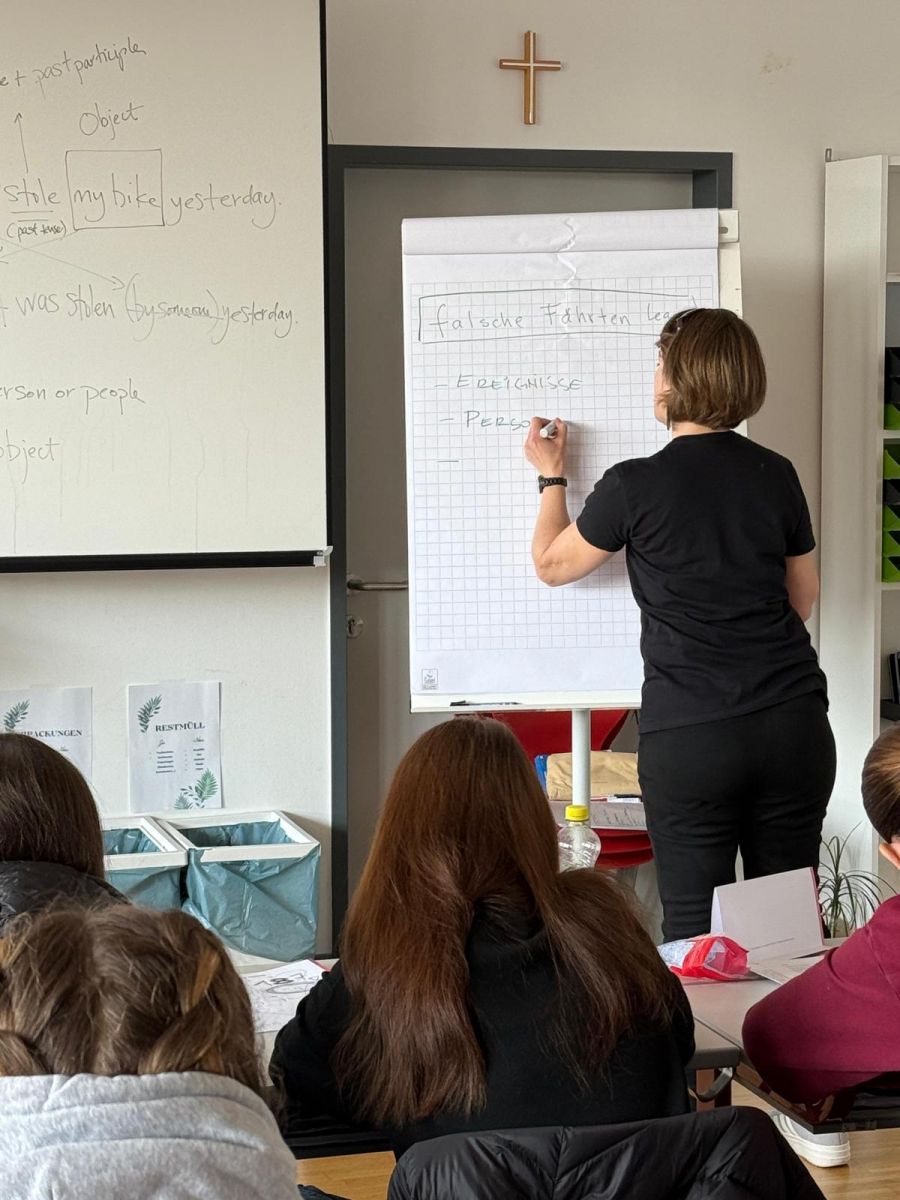 e + past participle
Object
stole my bike yesterday.
(past tense)
was stolen (by someone) yesterday.
erson or people
bject
falsche Fährten le
- EREIGNISSE
- PERSO
-
PACKUNGEN
RESTMÜLL